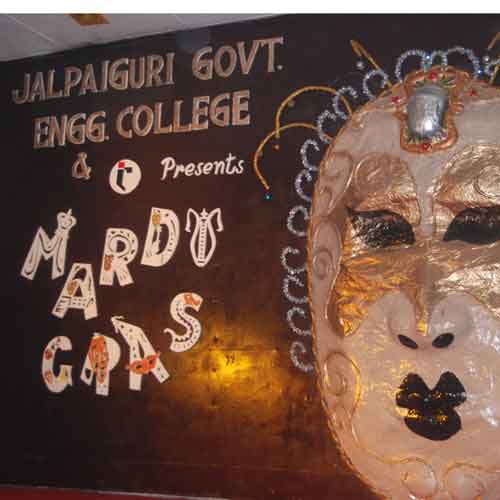 JALPAIGURI GOVT.
ENGG. COLLEGE
& r Presents
MARDI
GRAS